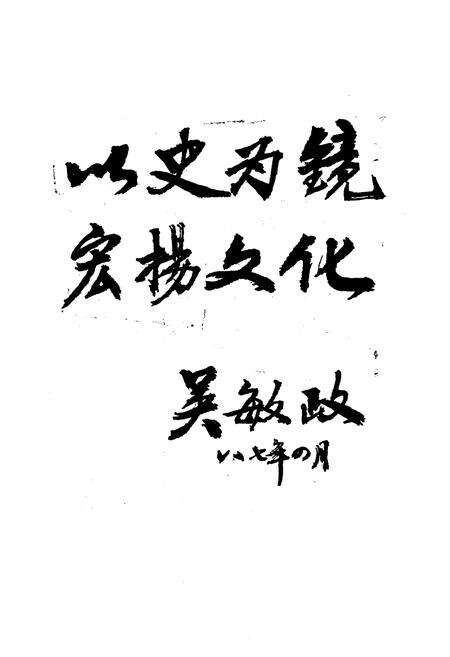 以史为镜
宏揚文化
吴敏政
八七年四月